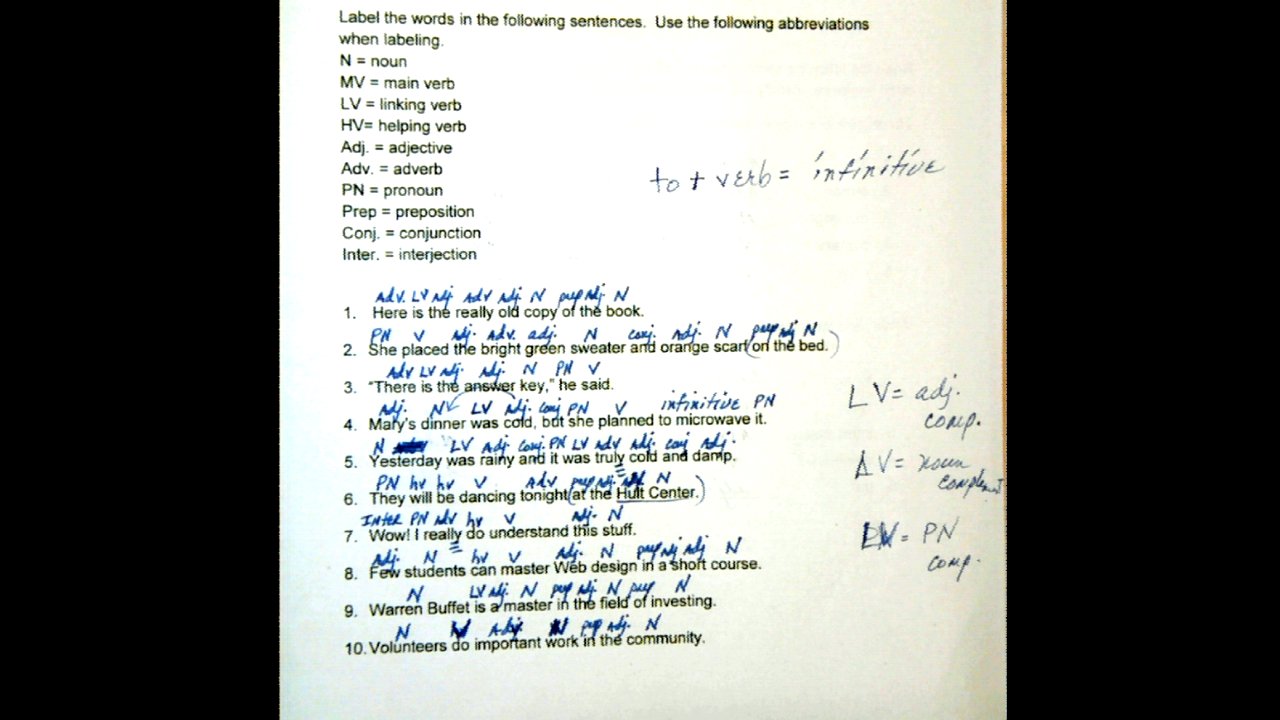 Label the words in the following sentences. Use the following abbreviations
when labeling.
N = noun
MV = main verb
LV = linking verb
HV= helping verb
Adj. = adjective
Adv. = adverb
to + verb = infinitive
PN = pronoun
Prep = preposition
Conj. = conjunction
Inter. = interjection
Adv. LV Adj Adv Adj N prep Adj N
1. Here is the really old copy of the book.
PN V Adj. Adv. adj. N conj. Adj. N prep adj N
2. She placed the bright green sweater and orange scarf (on the bed.)
Adv LV Adj. Adj. N PN V
3. "There is the answer key," he said.
Adj. N LV Adj. conj PN V infinitive PN
4. Mary's dinner was cold, but she planned to microwave it.
LV = adj.
comp.
N LV Adj conj. PN LV Adv Adj. conj Adj.
5. Yesterday was rainy and it was truly cold and damp.
LV = noun
PN hv hv V Adv prep adj. N
6. They will be dancing tonight (at the Hult Center.)
Inter PN adv hv V Adj. N
7. Wow! I really do understand this stuff.
= PN
comp.
Adj. N hv V Adj. N prep adj adj N
8. Few students can master Web design in a short course.
N LV adj. N prep adj. N prep N
9. Warren Buffet is a master in the field of investing.
N Adj. N prep adj. N
10. Volunteers do important work in the community.